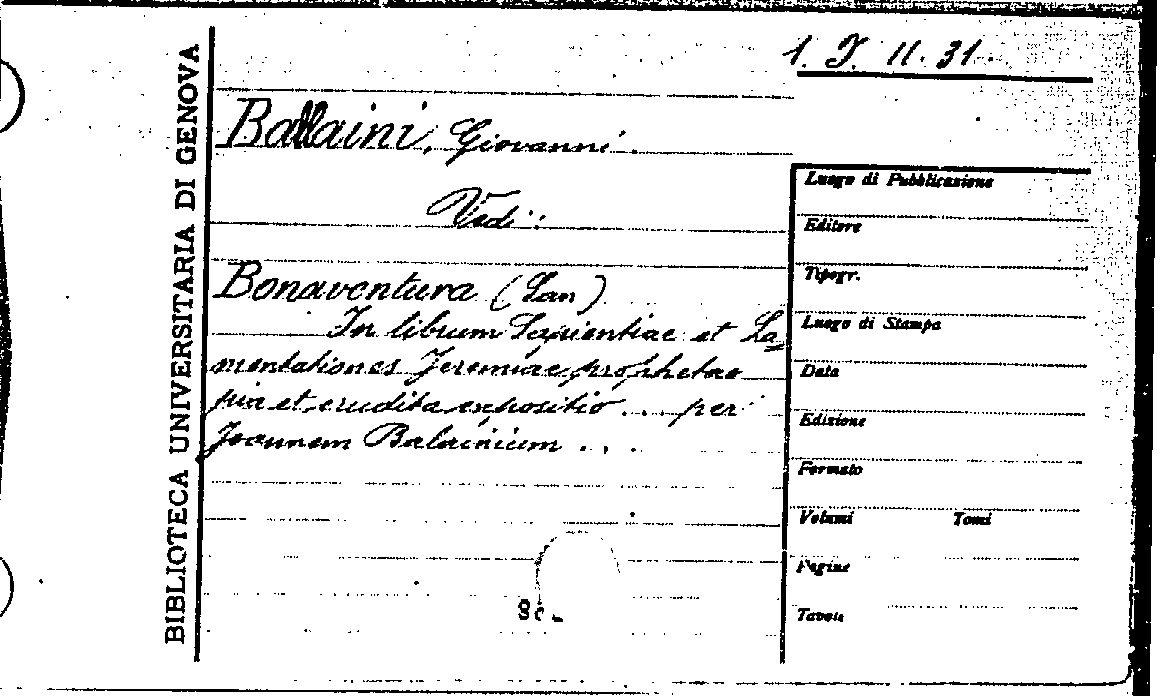 BIBLIOTECA UNIVERSITARIA DI GENOVA
1. J. 11. 31.
Ballaini, Giovanni.
Vedi:
Bonaventura (San)
In librum Sapientiae et La=
mentationes Jeremiae prophetae
pia et erudita expositio... per
Joannem Balainium...
Luogo di Pubblicazione
Editore
Tipogr.
Luogo di Stampa
Data
Edizione
Formato
Volumi Tomi
Pagine
Tavole